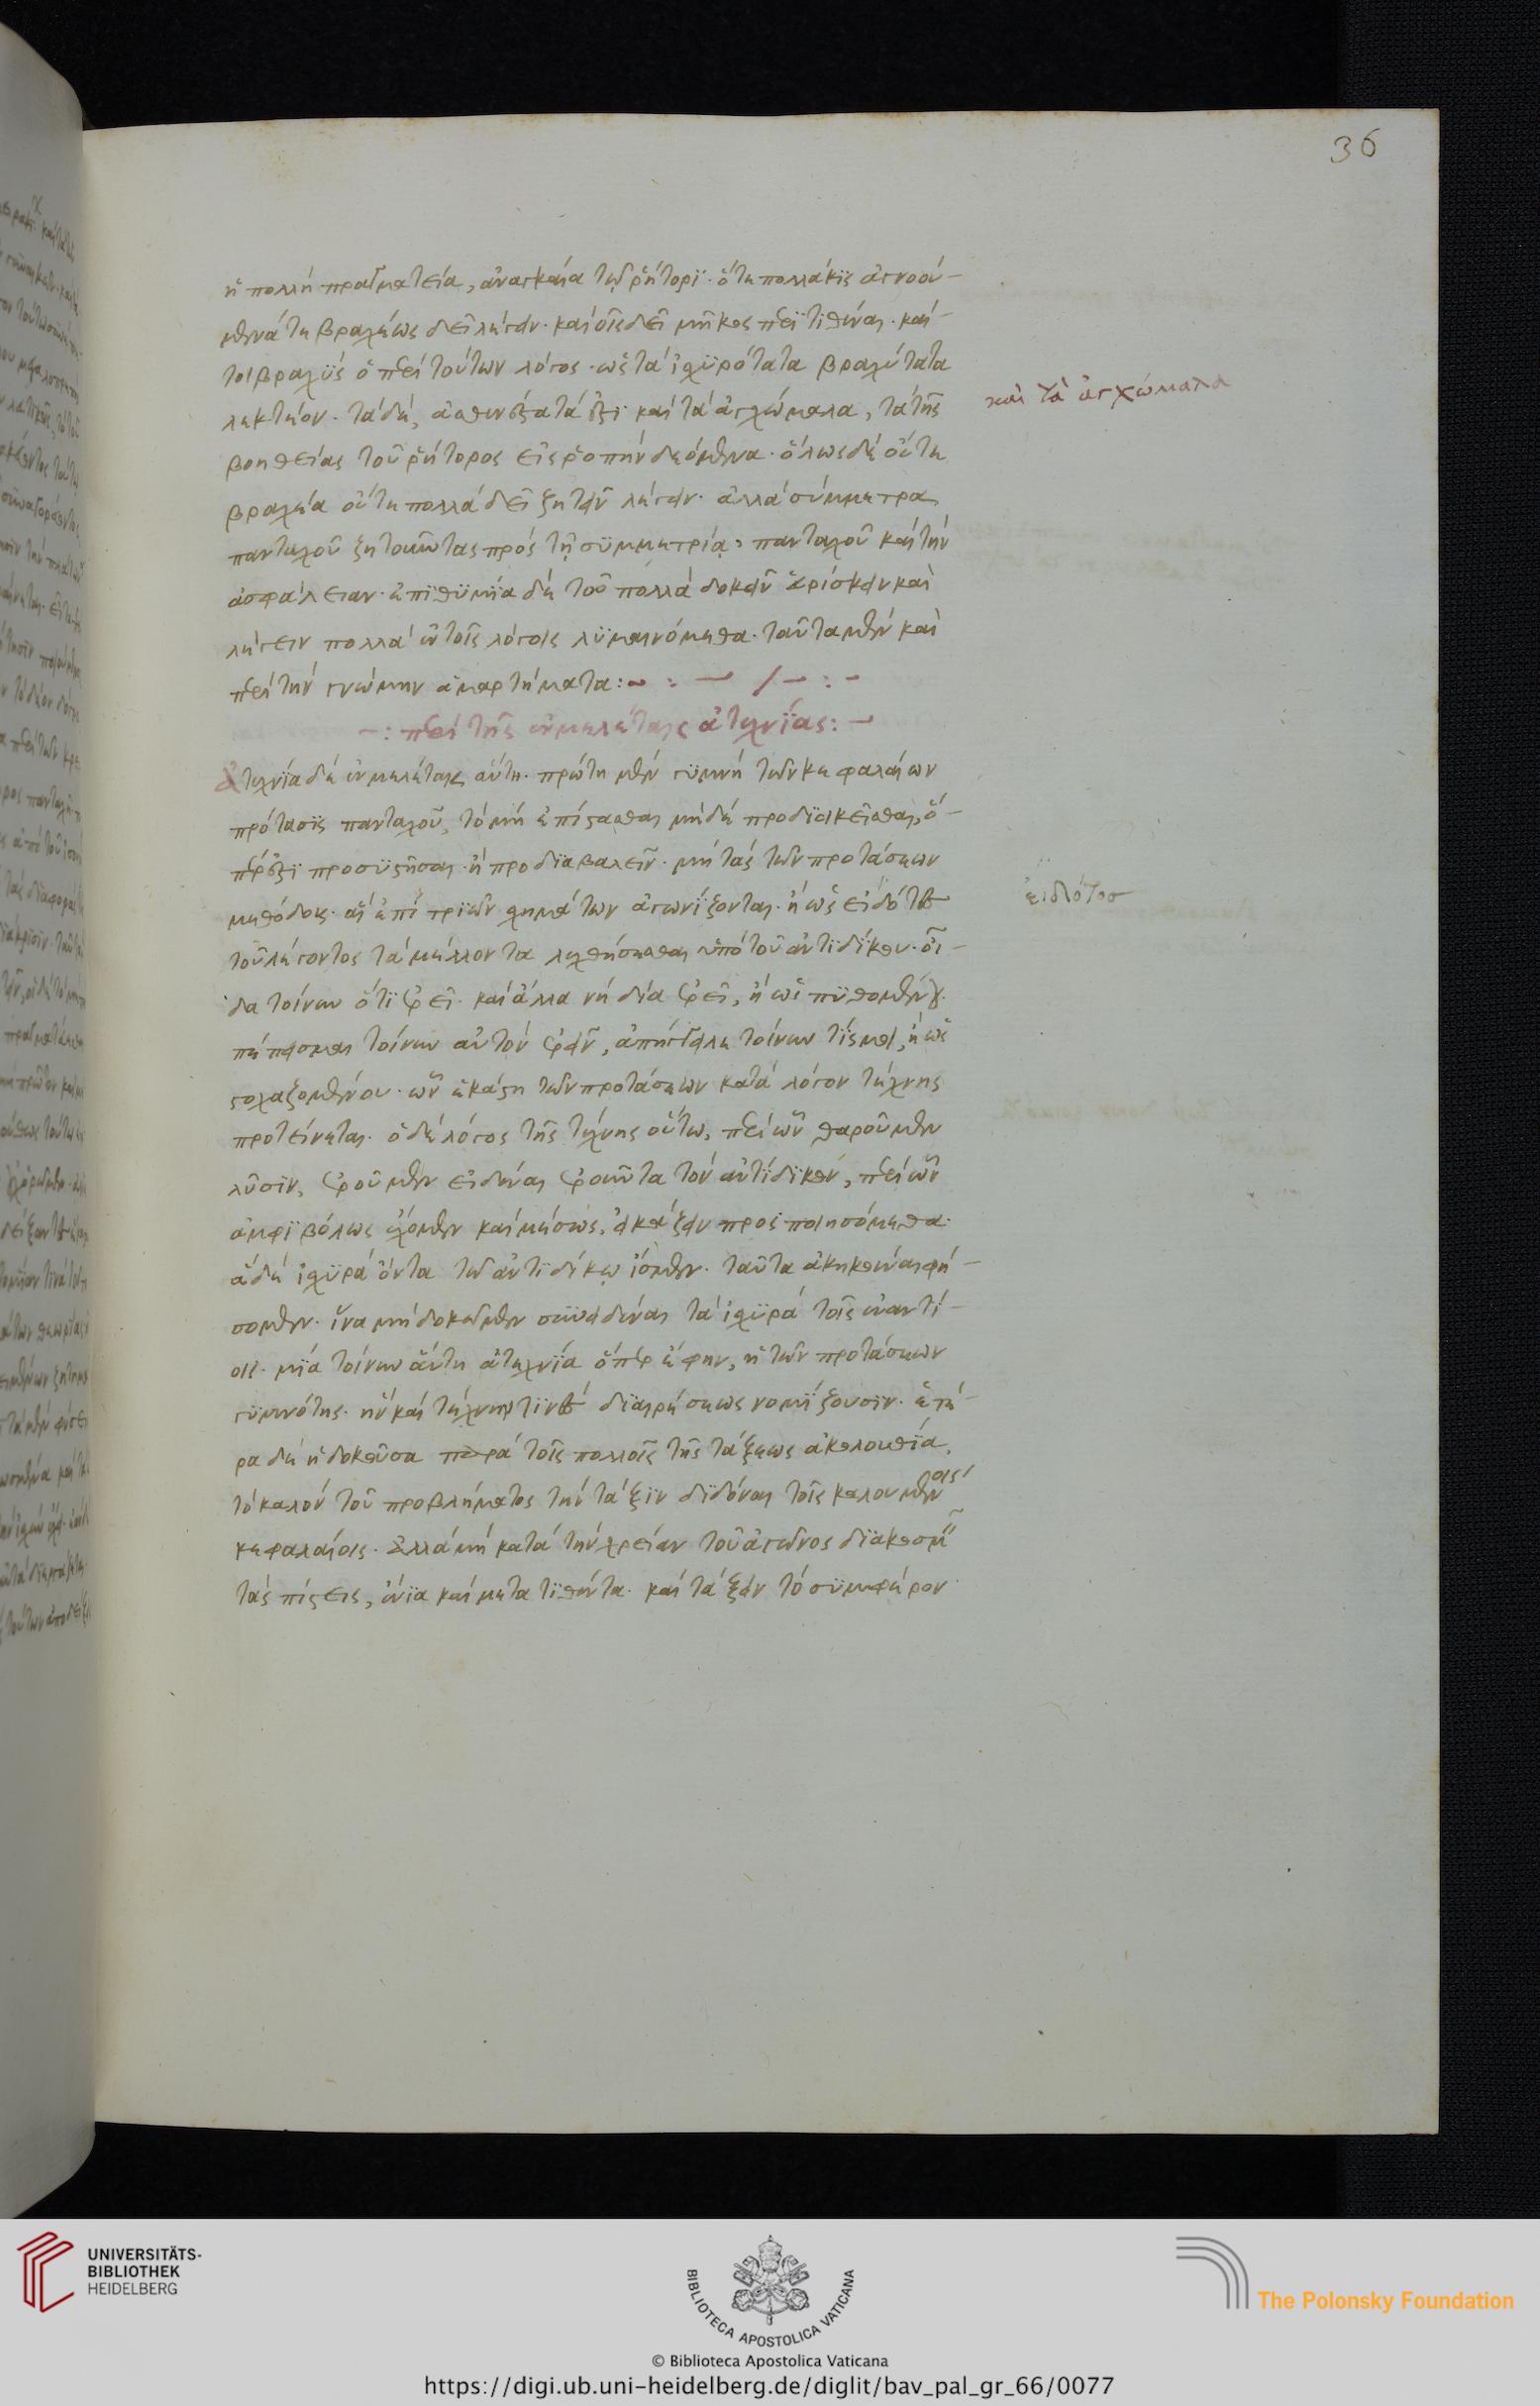 36
ἡ πολλὴ πραγματεία, ἀναγκαία τῷ ῥήτορι· ὅτε πολλάκις ἀγνοού-
μενά τε βραχέως δεῖ λέγειν· καὶ οἷς δεῖ μῆκος περιτιθέναι· καί-
τοι βραχὺς ὁ περὶ τούτων λόγος· ὡς τὰ ἰσχυρότατα βραχύτατα
λεκτέον· τὰ δὲ, ἀσθενέστατά ἐστι καὶ τὰ ἀγχώμαλα, τὰ τῆς
καὶ τὰ ἀγχώμαλα
βοηθείας τοῦ ῥήτορος εἰς ῥοπὴν δεόμενα· ὅλως δὲ οὔτε
βραχέα οὔτε πολλὰ δεῖ ζητεῖν λέγειν· ἀλλὰ σύμμετρα
πανταχοῦ ζητοῦντας πρὸς τῇ συμμετρίᾳ, πανταχοῦ καὶ τὴν
ἀσφάλειαν· ἐπιθυμία δὲ τοῦ πολλὰ δοκεῖν εὑρίσκειν καὶ
λέγειν πολλὰ ἐν τοῖς λόγοις λυμαινόμεθα· ταῦτα μὲν καὶ
περὶ τὴν γνώμην ἁμαρτήματα:
περὶ τῆς ἐν μελέταις ἀτεχνίας:
ἀτεχνία δὲ ἐν μελέταις αὕτη· πρώτη μὲν γυμνὴ τῶν κεφαλαίων
πρότασις πανταχοῦ, τὸ μὴ ἐπίστασθαι μηδὲ προδιοικεῖσθαι, ὅ-
περ ἐστὶ προσυστῆσαι· ἢ προδιαβαλεῖν· μὴ τὰς τῶν προτάσεων
μεθόδους· αἳ ἐπὶ τριῶν σχημάτων ἀγωνίζονται· ἢ ὡς εἰδότος
εἰδότος
τοῦ λέγοντος τὰ μέλλοντα λεχθήσεσθαι ὑπὸ τοῦ ἀντιδίκου· οἶ-
δα τοίνυν ὅτι ἐρεῖ· καὶ ἀλλὰ νὴ δία ἐρεῖ, ἢ ὡς πυθομένου·
πέπυσμαι τοίνυν αὐτὸν ἐρεῖν, ἀπήγγειλε τοίνυν τίς μοι, ἢ ὡς
στοχαζομένου· ὧν ἑκάστη τῶν προτάσεων κατὰ λόγον τέχνης
προτείνεται· ὁ δὲ λόγος τῆς τέχνης οὕτω, περὶ ὧν θαροῦμεν
λῦσιν, ἐροῦμεν εἰδέναι ἐροῦντα τὸν ἀντίδικον, περὶ ὧν
ἀμφιβόλως ἔχομεν καὶ μέσως, εἰκάζειν προσποιησόμεθα·
ἃ δὲ ἰσχυρὰ ὄντα τῷ ἀντιδίκῳ ἴσμεν· ταῦτα ἀκηκοέναι φή-
σομεν· ἵνα μὴ δοκῶμεν συνειδέναι τὰ ἰσχυρὰ τοῖς ἐναντί-
οις· μία τοίνυν αὕτη ἀτεχνία ὅπερ ἔφην, ἡ τῶν προτάσεων
γυμνότης· ἣν καὶ τέχνην τινὲς διαιρέσεως νομίζουσιν· ἑτέ-
ρα δὲ ἡ δοκοῦσα παρὰ τοῖς πολλοῖς τῆς τάξεως ἀκολουθία,
τὸ καλὸν τοῦ προβλήματος τὴν τάξιν διδόναι τοῖς καλουμένοις
κεφαλαίοις· ἀλλὰ μὴ κατὰ τὴν χρείαν τοῦ ἀγῶνος διακοσμεῖν
τὰς πίστεις, ἔνια καὶ μετατιθέντα· καὶ τάξειν τὸ συμφέρον
UNIVERSITÄTS-
BIBLIOTHEK
HEIDELBERG
BIBLIOTECA APOSTOLICA VATICANA
© Biblioteca Apostolica Vaticana
The Polonsky Foundation
https://digi.ub.uni-heidelberg.de/diglit/bav_pal_gr_66/0077